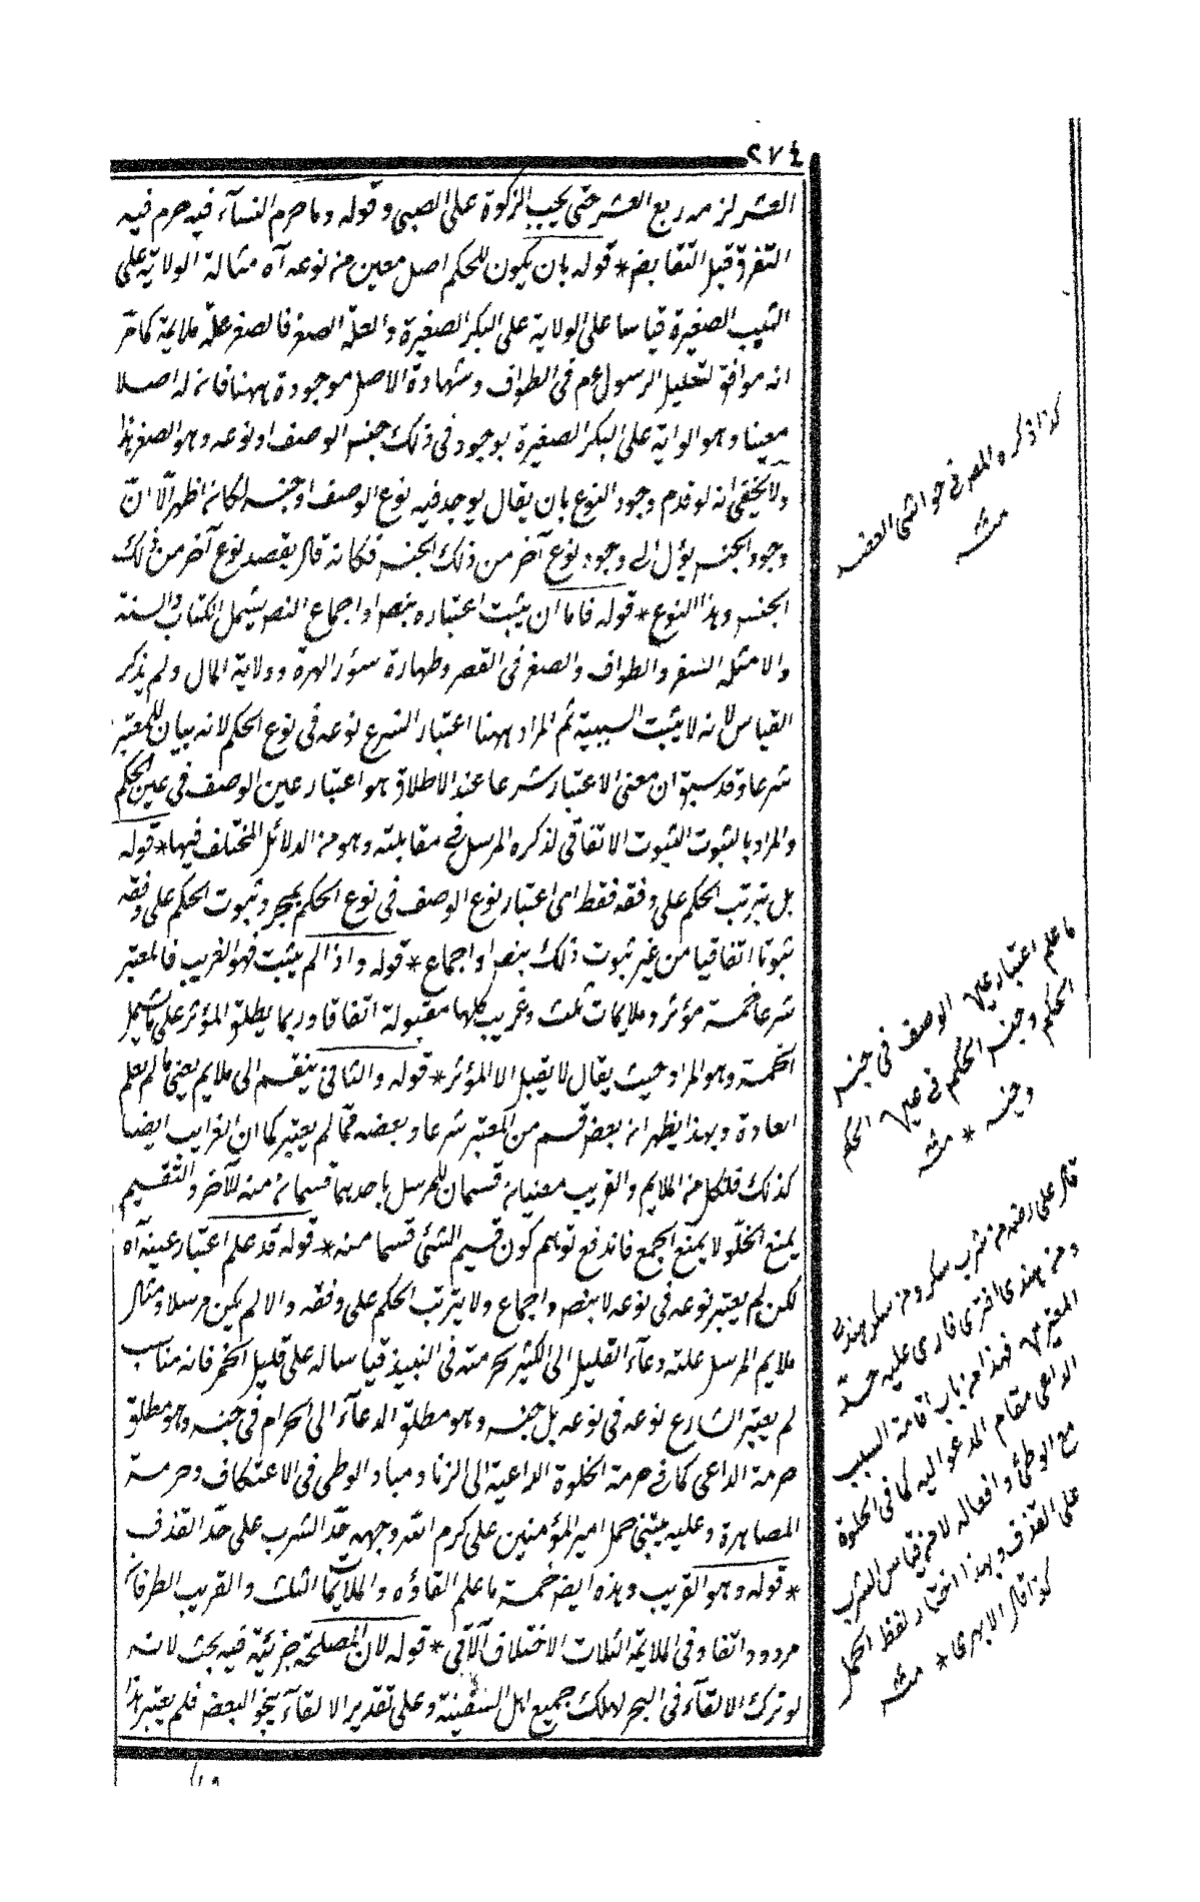 ٢٧٤
العشر لزمه ربع العشر حتى يجب الزكوة على الصبى و قوله وما حرم النسآء فيه حرم فيه
التفرق قبل التقابض * قوله بان يكون للحكم اصل معين من نوعه آه مثاله الولاية على
الثيب الصغيرة قياسا على الولاية على البكر الصغيرة والعلة الصغر فالصغر علة ملايمة كما مر
انه موافق لتعليل الرسول عم فى الطواف وشهادة الاصل موجودة ههنا فان له اصلا
معينا وهو الولاية على البكر الصغيرة بوجود فى ذلك جنس الوصف او نوعه وهو الصغر هذا
ولا يخفى انه لو قدم وجود النوع بان يقال يوجد فيه نوع الوصف او جنسه لكان اظهر الّا انّ
وجود الجنس يؤل الى وجود نوع آخر من ذلك الجنس فكانه قال يقصد نوع آخر من ذلك
الجنس وهذا النوع * قوله فاما ان يثبت اعتباره بنص او اجماع النص يشمل الكتاب والسنة
والامثلة السفر والطواف والصغر فى القصر وطهارة سؤر الهرة وولاية المال ولم يذكر
القياس لانه لا يثبت السببية ثم المراد ههنا اعتبار الشرع نوعه فى نوع الحكم لانه بيان للمعتبر
شرعا وقد سبق ان معنى الاعتبار شرعا عند الاطلاق هو اعتبار عين الوصف فى عين الحكم
والمراد بالثبوت الثبوت الاتفاقى لذكره المرسل فى مقابلته وهو من الدلائل المختلف فيها * قوله
بل بترتب الحكم على وفقه فقط اى اعتبار نوع الوصف فى نوع الحكم بمجرد ثبوت الحكم على وفقه
ثبوتا اتفاقيا من غير ثبوت ذلك بنص او اجماع * قوله واذا لم يثبت فهو الغريب فالمعتبر
شرعا خمسة مؤثر وملايمات ثلث وغريب كلها مقبولة اتفاقا وربما يطلق المؤثر على ما يشمل
الخمسة وهو المراد حيث يقال لا يقبل الا المؤثر * قوله والثانى ينقسم الى ملايم يعنى ما لم يعلم
الغاؤه وبهذا يظهر ان بعض قسم من المعتبر شرعا وبعضه ممّا لم يعتبر كما ان الغرايب ايضا
كذلك فلكل من الملايم والغريب معنيان قسمان للمرسل باحدهما قسيمان منه للآخر والتقسيم
يمنع الخلو لا يمنع الجمع فاندفع توهم كون قسيم الشئ قسما منه * قوله قد علم اعتبار عينه آه
لكن لم يعتبر نوعه فى نوعه لا بنص واجماع ولا بترتب الحكم على وفقه والا لم يكن مرسلا ومثال
ملايم المرسل علته دعآء القليل الى الكثير لحرمته فى النبيذ قياسا له على قليل الخمر فانه مناسب
لم يعتبر الشارع نوعه فى نوعه بل جنسه وهو مطلق الدعآء الى الحرام فى جنسه وهو مطلق
حرمة الداعى كما فى حرمة الخلوة الداعية الى الزنا ومباد الوطى فى الاعتكاف وحرمة
المصاهرة وعليه يبتنى حمل امير المؤمنين على كرم الله وجهه حدّ الشرب على حدّ القذف
* قوله وهو الغريب وهذه ايضا خمسة ما علم الغاؤه والملايمات الثلث والغريب الطرفان
مردود اتفاقا وفى الملايمة الثلاث الاختلاف الآتى * قوله لان المصلحة جزئية فيه بحث لانه
لو ترك الالقآء فى البحر لهلك جميع اهل السفينة وعلى تقدير الالقآء ينجو البعض فلم يعتبر هذا
كذا ذكره المص فى حواشى العضد
منه
ما علم اعتبار عين الوصف فى جنس
الحكم وجنسه فى عين الحكم
وجنسه * منه
قال على رضه من شرب سكر ومن سكر هذى
ومن هذى افترى فارى عليه حدّ
المفترى فهذا من باب اقامة السبب
الداعى مقام المدعو اليه كما فى الخلوة
مع الوطئ وافعاله لا من قياس الشرب
على القذف وبهذا اختار لفظ الحمل
كذا قال الابهرى * منه